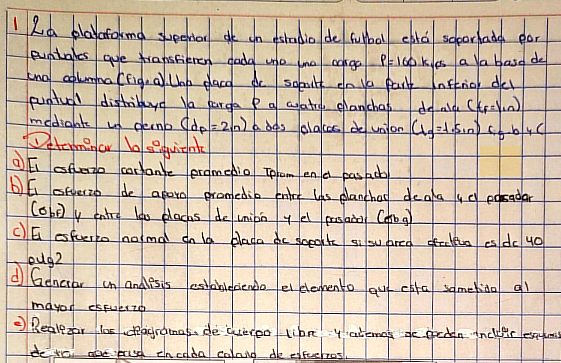 1 La plataforma superior de un estadio de futbol está soportada por
puntales que transfieren cada uno una carga P=100 Kips a la base de
una columna (Fig.a) Una placa de soporte en la parte inferior del
puntual distribuye la carga P a cuatro planchas de ala (tf=1in)
mediante un perno (dp=2in) a dos placas de union (tg=1.5in) fig. b y c
Determinar lo siguiente
a) El esfuerzo cortante promedio τprom en el pasador
b) El esfuerzo de apoyo promedio entre las planchas de ala y el pasador
(σbf) y entre las placas de unión y el pasador (σbg)
c) El esfuerzo normal en la placa de soporte si su area efectiva es de 40
pulg2
d) Generar un analisis estableciendo el elemento que esta sometido al
mayor esfuerzo
e) Realizar los diagramas de cuerpo libre y ademas se pueden incluir esquemas
de en cada calculo de esfuerzos.